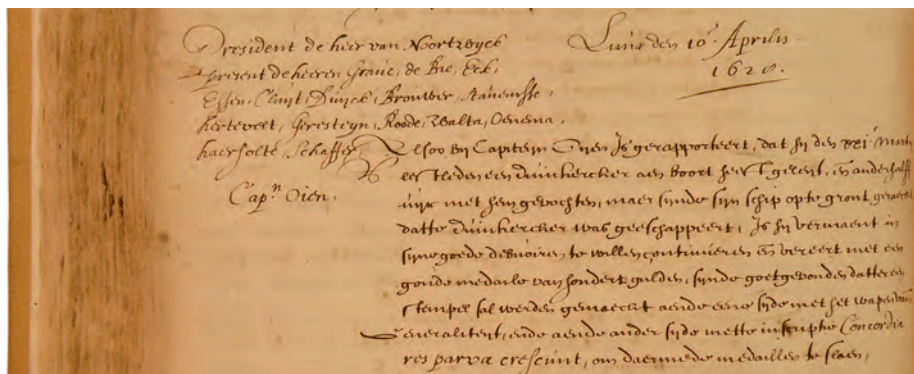 President de heer van Noortwyck
present de heeren Graue, de Bie, Eck,
Essen, Cluijt, Duijck, Brouwer, Raueinsse,
kerkevelt, Geresteyn, Roode, Walta, Oenema,
haersolte, Schaffer,
Lunæ den 10.e Aprilis
1628.
Capn. Oien.
Alsoo by Capitein Oijen is gerapporteert, dat hy den xxi.e Marty
lestleden een duinkercker aen boort heeft geleit, en anderhalff
uijr met hem gevochten, maer synde syn schip opte gront geraect
datte duinkercker was geeschappeert, Is hy vermaent in
syne goede debuoiren te willen continueren en vereert met een
goude medaele van hondert gulden, synde goetgevonden datter een
Stempel sal werden gemaeckt aende eene syde met het wapen van
Generaliteit, ende aende ander syde mette inscriptie Concordia
res parva crescunt, om daermede medaillen te slaen,